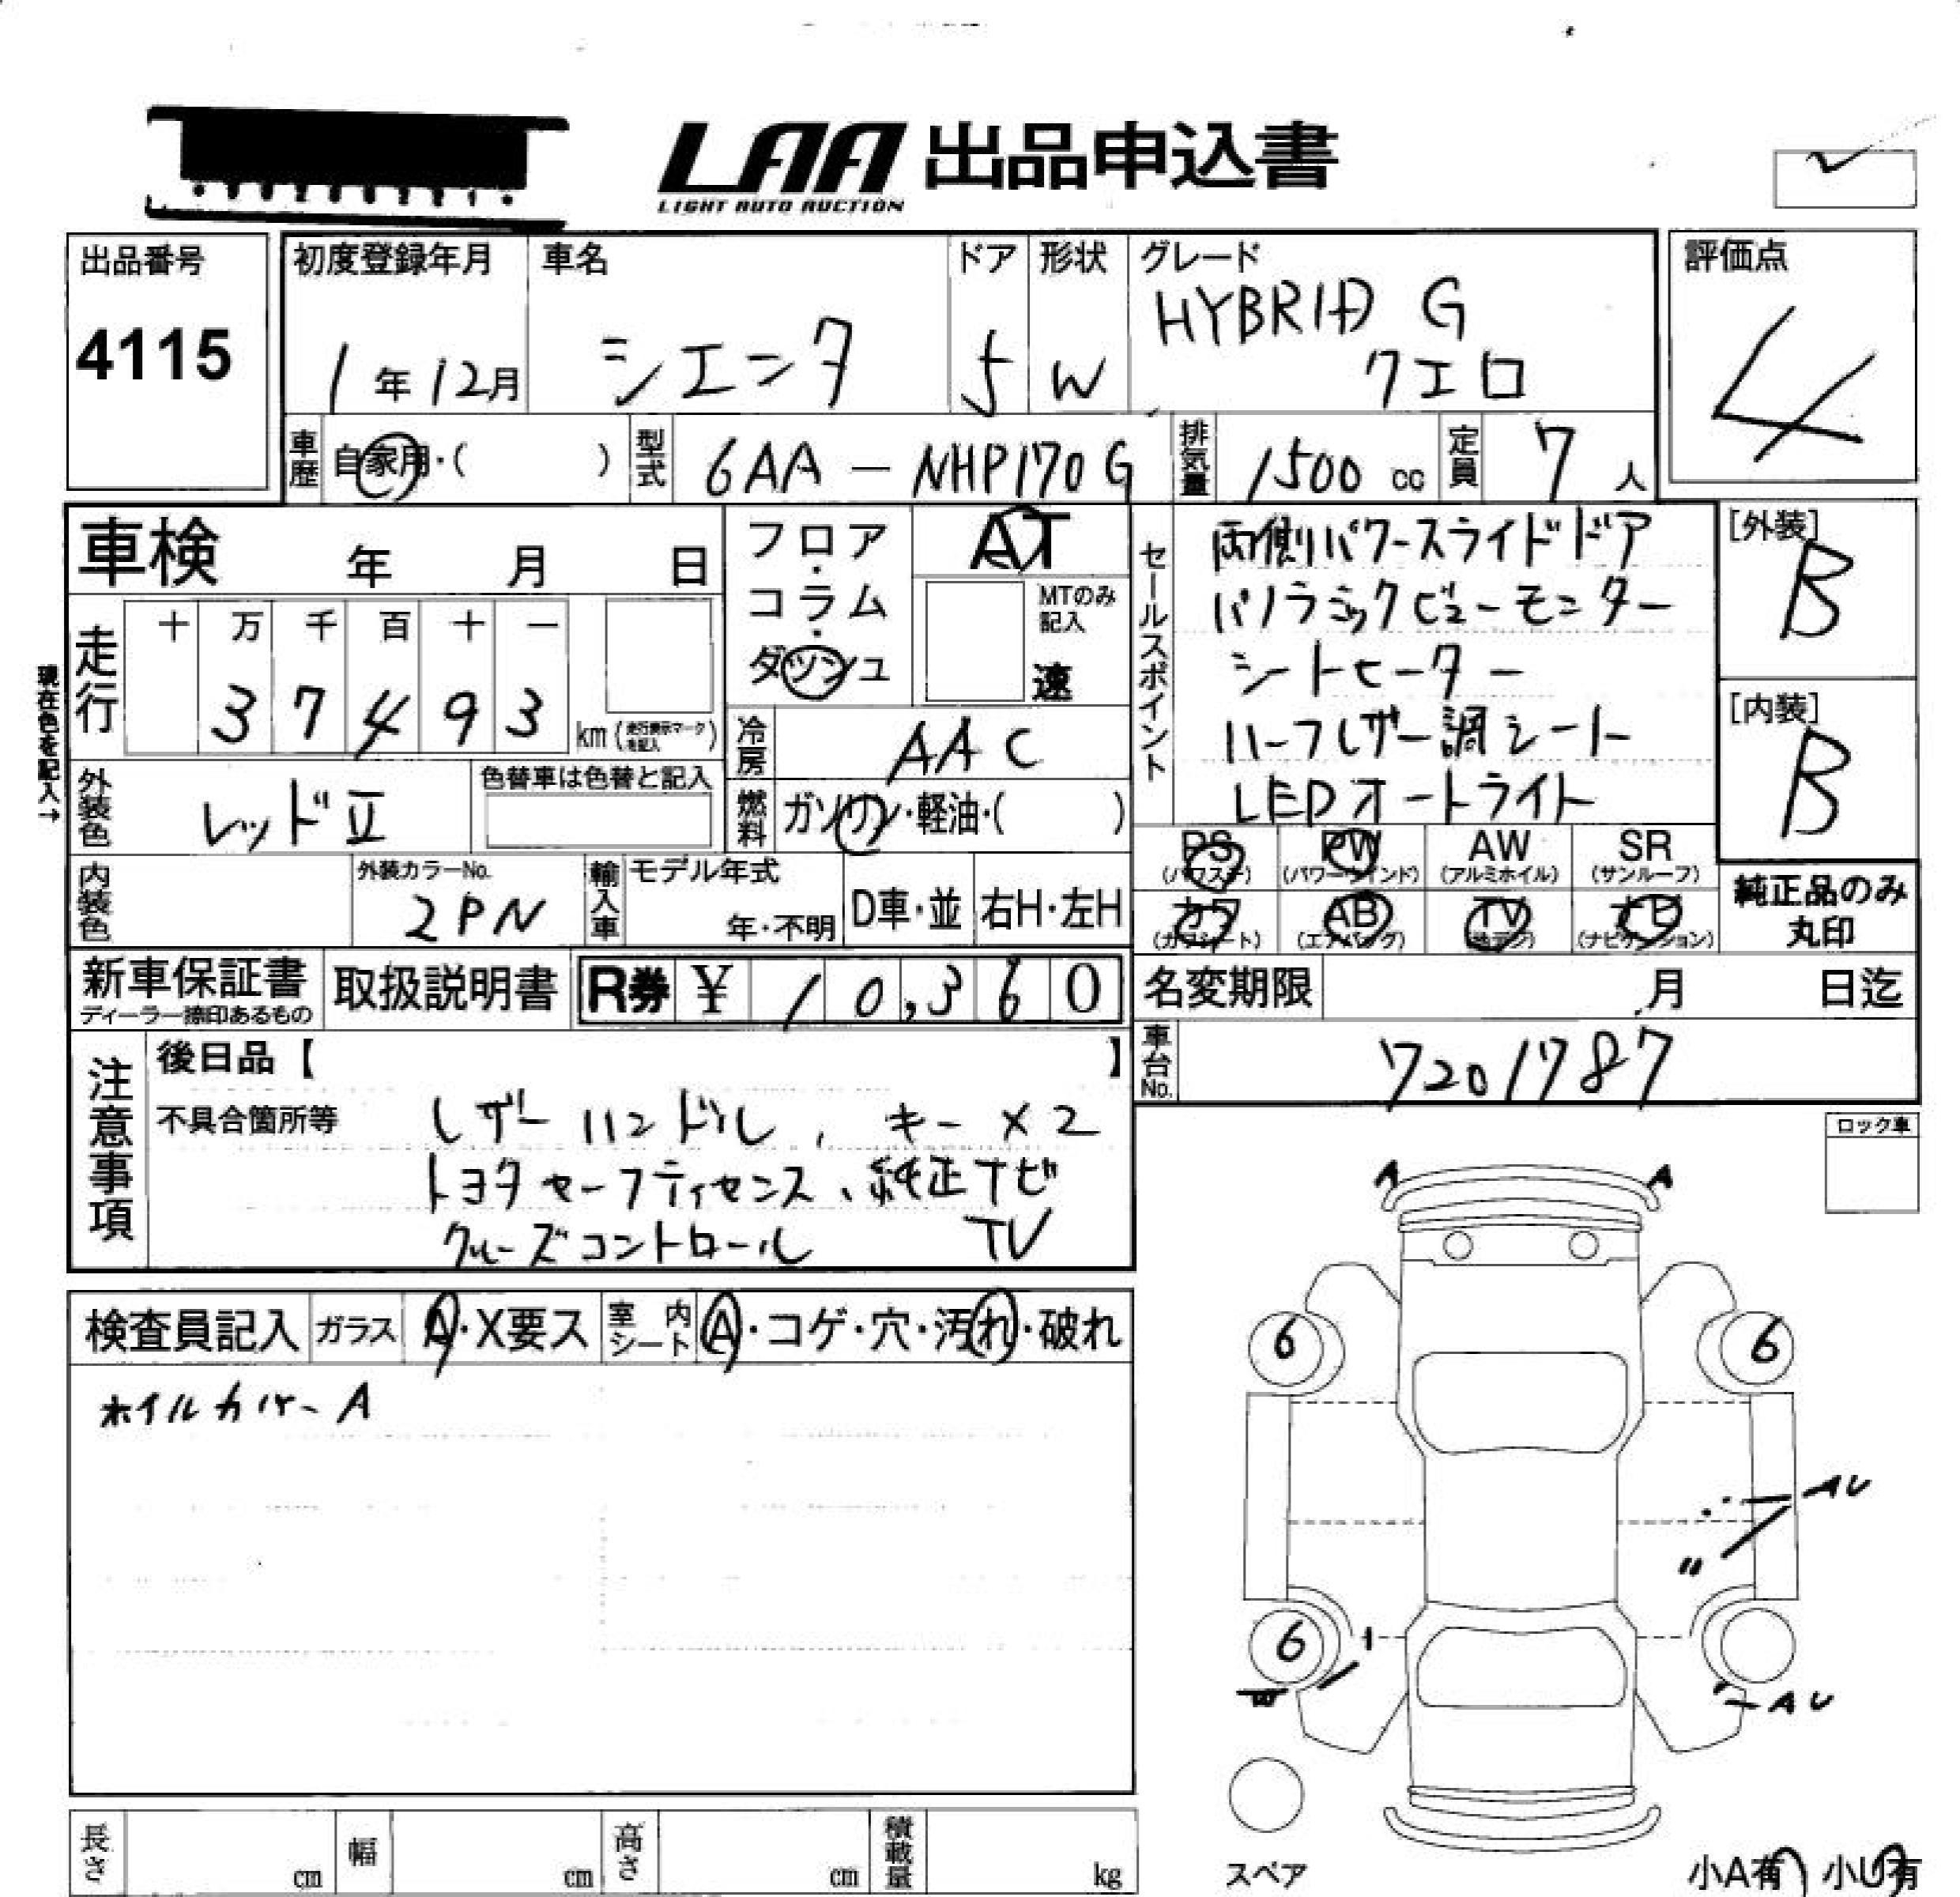 LAA 出品申込書
LIGHT AUTO AUCTION
出品番号
4115
初度登録年月
1年12月
車名
シエンタ
ドア
5
形状
W
グレード
HYBRID G
クエロ
評価点
4
車歴
自家用・( )
型式
6AA-NHP170G
排気量
1500 cc
定員
7人
車検 年 月 日
フロア・コラム・ダッシュ
AT
MTのみ記入
速
セールスポイント
両側パワースライドドア
パノラミックビューモニター
シートヒーター
ハーフレザー調シート
LEDオートライト
[外装]
B
[内装]
B
現在色を記入→
走行
十 万 千 百 十 一
3 7 4 9 3
km(走行表示マークを記入)
冷房
AAC
外装色
レッドⅡ
色替車は色替と記入
燃料
ガソリン・軽油・( )
PS (パワステ)
PW (パワーウインド)
AW (アルミホイル)
SR (サンルーフ)
カワ (カワシート)
AB (エアバッグ)
TV (地デジ)
ナビ (ナビゲーション)
純正品のみ
丸印
内装色
外装カラーNo.
2PN
輸入車
モデル年式
年・不明
D車・並
右H・左H
新車保証書
ディーラー捺印あるもの
取扱説明書
R券 ¥ 10,360
名変期限 月 日迄
車台No.
7201787
注意事項
後日品【 】
不具合箇所等
レザーハンドル、キー×2
トヨタセーフティセンス、純正ナビ
クルーズコントロール TV
ロック車
検査員記入
ガラス
A・X要ス
室内シート
A・コゲ・穴・汚れ・破れ
ホイルカバーA
A A
6 6
AU
〃
6
W
AU
スペア
小A有 小U有
長さ cm
幅 cm
高さ cm
積載量 kg